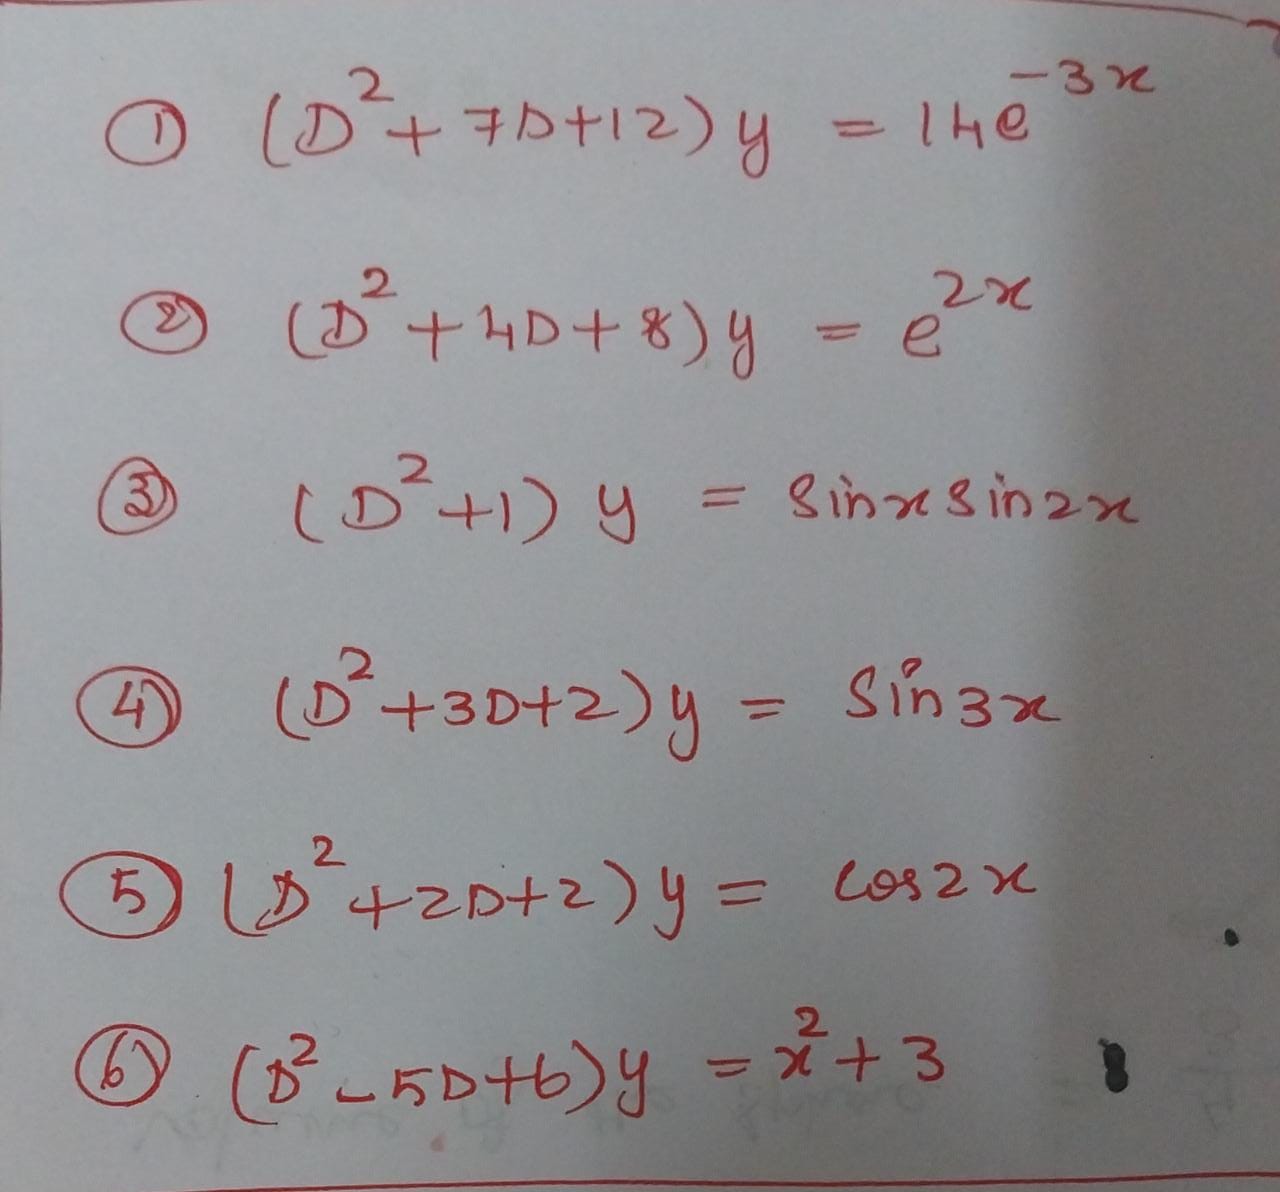 ① (D²+7D+12)y = 14e⁻³ˣ
② (D²+4D+8)y = e²ˣ
③ (D²+1)y = sinxsin2x
④ (D²+3D+2)y = Sin3x
⑤ (D²+2D+2)y = cos2x
⑥ (D²-5D+6)y = x²+3